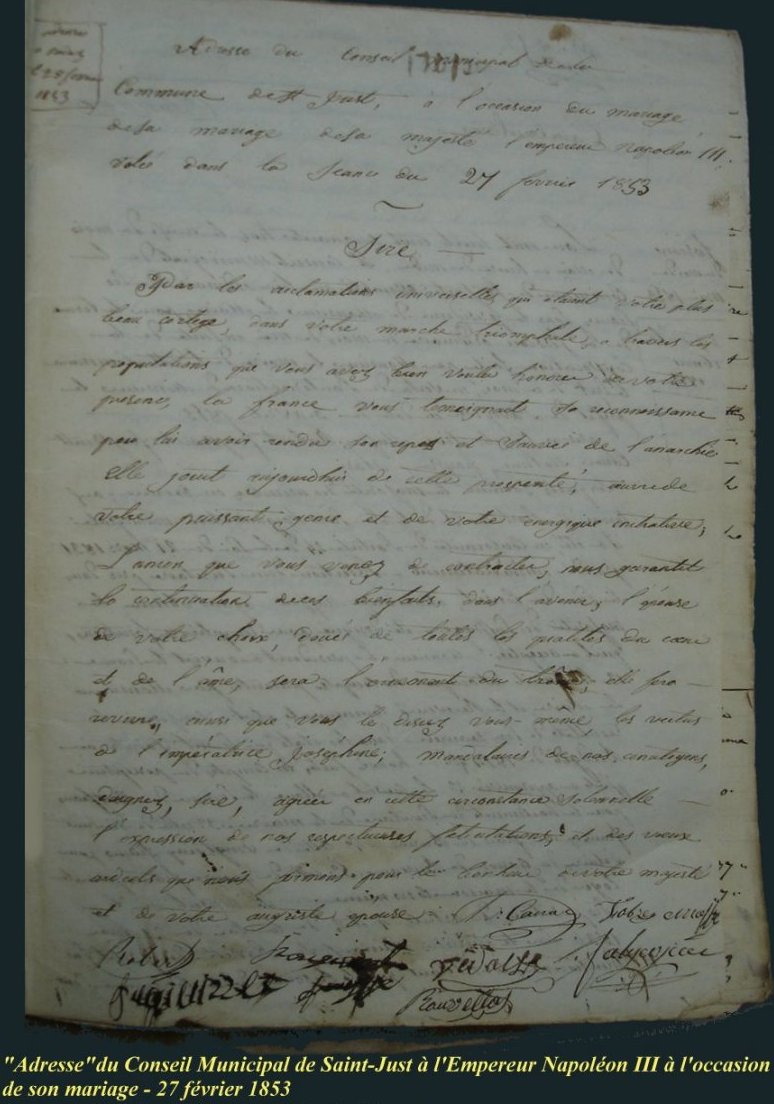 adresse
28 fevrier
1853
Adresse du Conseil municipal de la
Commune de St Just, à l'occasion du mariage
de sa mariage de sa majesté l'empereur Napoléon III
Votée dans la Seance du 27 fevrier 1853
Sire,
Par les acclamations universelles qui étaient votre plus
beau cortège, dans votre marche triomphale, a travers les
populations que vous avez bien voulu honorer de votre
presence, la france vous temoignait sa reconnoissance
pour lui avoir rendu son repos et sauvée de l'anarchie
elle jouit aujourdhui de cette prosperité, œuvre de
votre puissant genie et de votre energique initiative;
L'union que vous venez de contracter, nous garantit
la continuation de ces bienfaits dans l'avenir; l'épouse
de votre choix, douée de toutes les qualités du cœur
et de l'âme, sera l'ornement du trône; elle fera
revivre, ainsi que vous le disiez vous-même, les vertus
de l'impératrice Joséphine; mandataires de nos concitoyens,
daignez, sire, agréer en cette circonstance solennelle
l'expression de nos respectueuses félicitations, et des vœux
que nous formons pour le bonheur de votre majesté
et de votre auguste épouse.
"Adresse"du Conseil Municipal de Saint-Just à l'Empereur Napoléon III à l'occasion
de son mariage - 27 février 1853